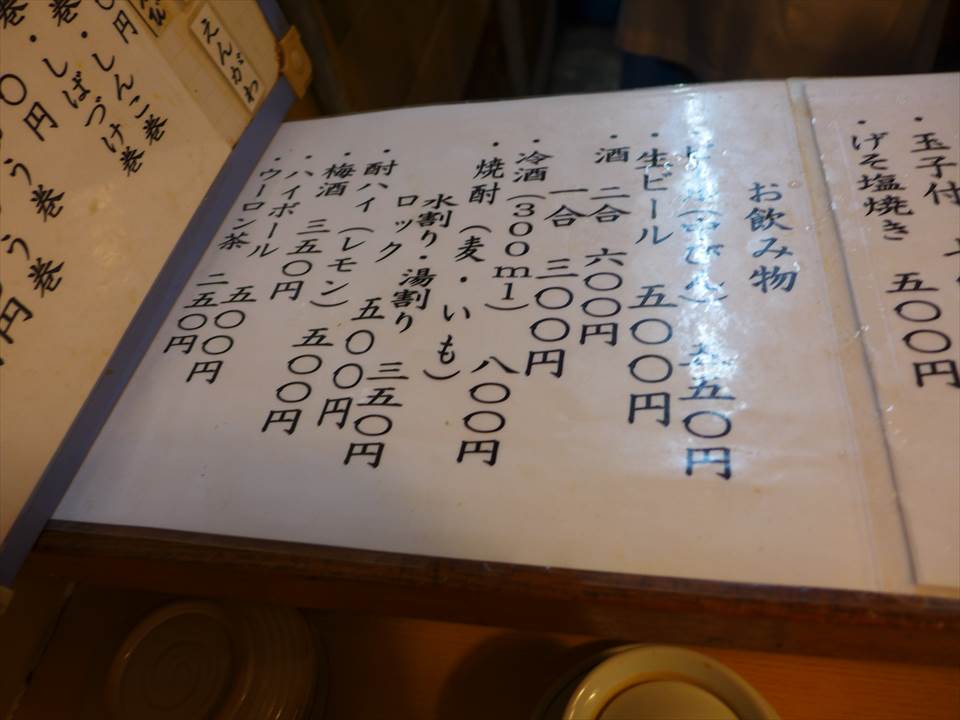 玉子付
・げそ塩焼き 五〇〇円
お飲み物
五〇円
・生ビール 五〇〇円
・酒 二合 六〇〇円
一合 三〇〇円
・冷酒(300ml) 八〇〇円
・焼酎(麦・いも)
水割り・湯割り 三五〇円
ロック 五〇〇円
・酎ハイ(レモン) 五〇〇円
・梅酒 三五〇円
・ハイボール 五〇〇円
・ウーロン茶 二五〇円
えんがわ
円
・しんこ巻
巻・しばづけ巻
巻
〇円
う巻
う巻
円